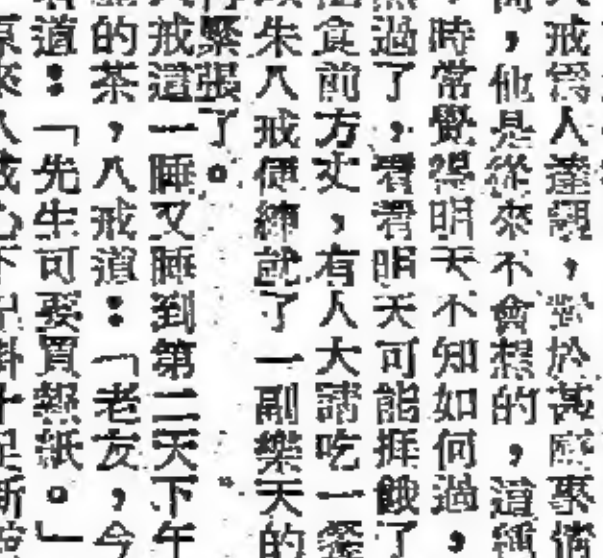 戒爲人達觀，對於甚麼事情
，他是從來不會想的，這種
時常覺得明天不知如何過，
過了，看看明天可能捱餓了
食前方丈，有人大請吃一餐
朱八戒便練就了一副樂天的
緊張了。
戒這一睡又睡到第二天下午
的茶，八戒道：「老友，今
道：「先生可要買報紙。」